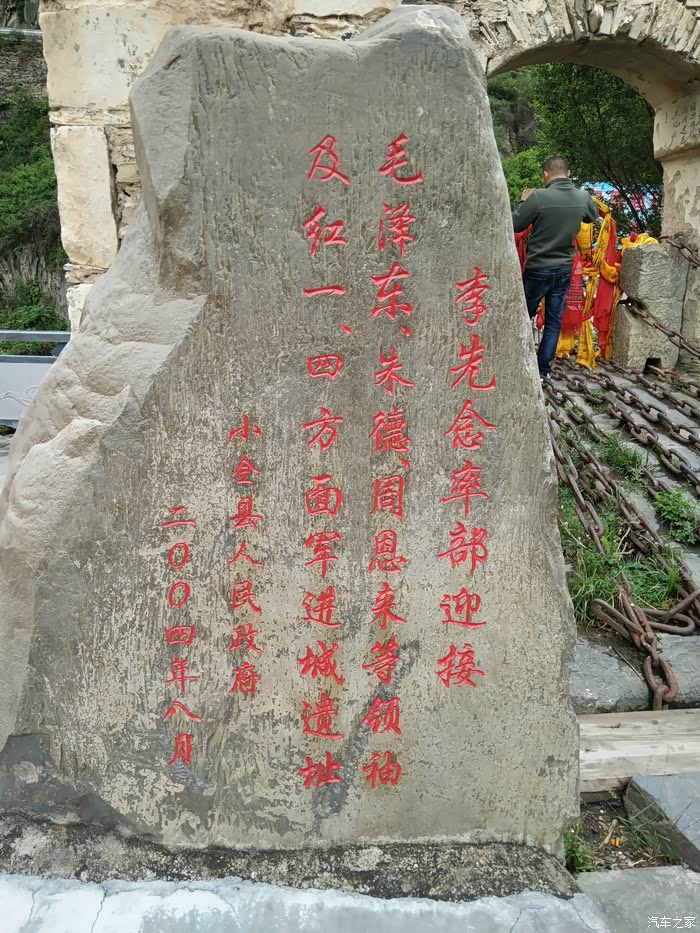 李先念率部迎接
毛泽东、朱德、周恩来等领袖
及红一、四方面军进城遗址
小金县人民政府
二〇〇四年八月
汽车之家